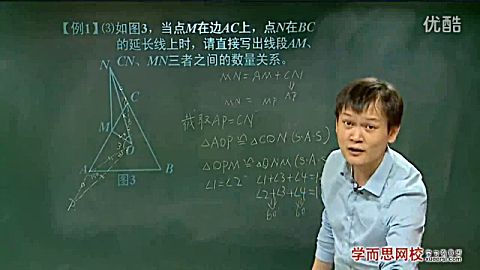 优酷
【例1】(3)如图3，当点M在边AC上，点N在BC
的延长线上时，请直接写出线段AM、
CN、MN三者之间的数量关系。
MN = AM + CN
AP
MN = MP
截取AP=CN
△AOP≌△CON(S·A·S)
△OPM≌△ONM(S·A·S)
∠1=∠2 ∠1+∠3+∠4=
∠2+∠3+∠4=
60 60
N
C
M
O
A
B
P
图3
学而思网校